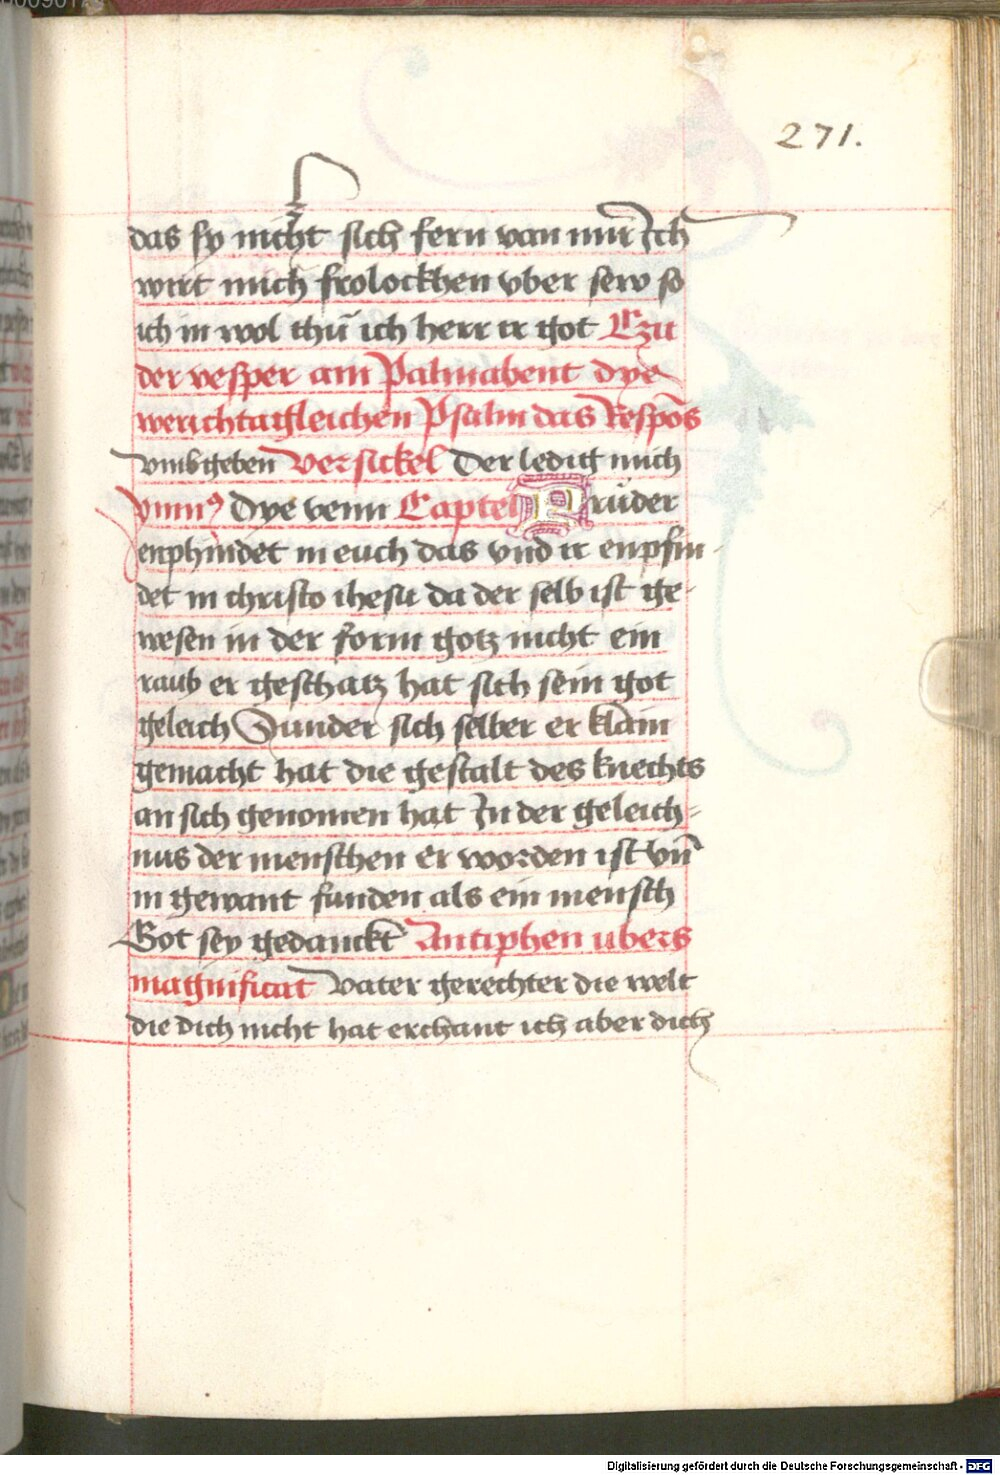 271.
das sy nicht sich fern von mir Ich
wirt mich frolockhen vber sew so
ich in wol thũ ich herr ir got Czu
der vesper am Palmabent dye
werichtagleichen Psalm das Respõs
vmbgeben Versickel Der ledig mich
ymnꝰ Dye venn Captel Brüder
enphindet in euch das vnd ir enpfin-
det in christo ihesu da der selb ist ge-
wesen in der form gotz nicht ein
raub er geschatz hat sich sein got
geleich Sunder sich selber er klain
gemacht hat die gestalt des knechts
an sich genomen hat In der geleich-
nus der menschen er worden ist vñ
in gewant funden als ein mensch
Got sey gedanckt Antiphen ubers
magnificat Vater gerechter die welt
die dich nicht hat erchant ich aber dich
Digitalisierung gefördert durch die Deutsche Forschungsgemeinschaft - DFG